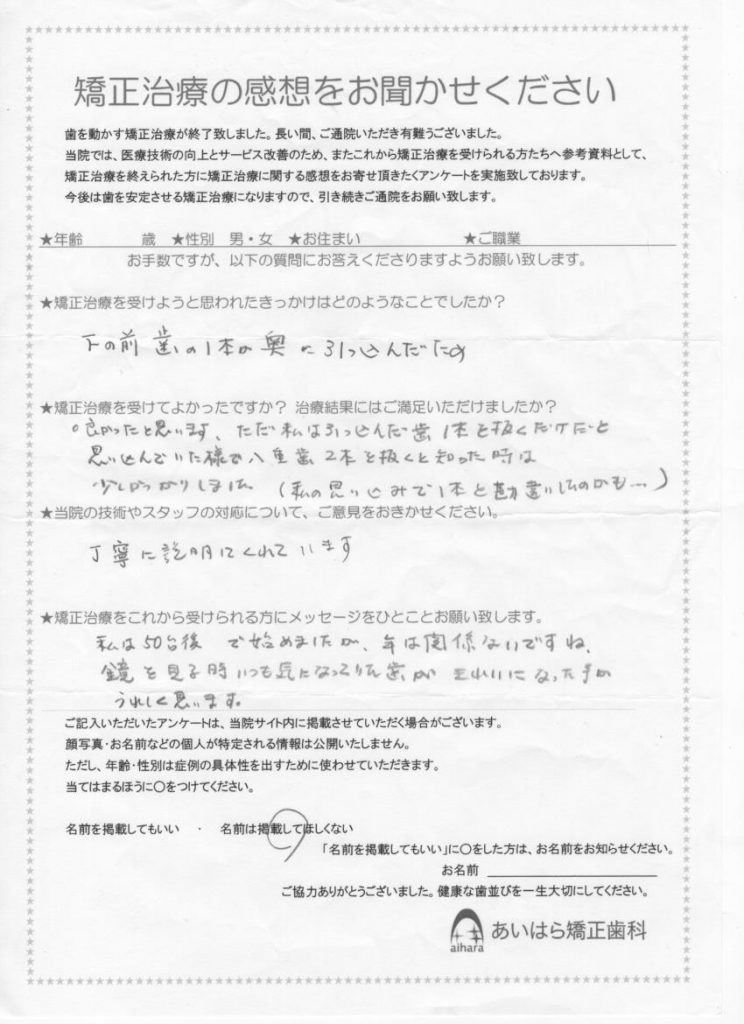 矯正治療の感想をお聞かせください
歯を動かす矯正治療が終了致しました。長い間、ご通院いただき有難うございました。
当院では、医療技術の向上とサービス改善のため、またこれから矯正治療を受けられる方たちへ参考資料として、
矯正治療を終えられた方に矯正治療に関する感想をお寄せ頂きたくアンケートを実施致しております。
今後は歯を安定させる矯正治療になりますので、引き続きご通院をお願い致します。
★年齢　　　歳　★性別　男・女　★お住まい　　　　　★ご職業
お手数ですが、以下の質問にお答えくださりますようお願い致します。
★矯正治療を受けようと思われたきっかけはどのようなことでしたか？
下の前歯の1本が奥に引っ込んだため
★矯正治療を受けてよかったですか？ 治療結果にはご満足いただけましたか？
。良かったと思います、ただ私は引っ込んだ歯1本を抜くだけだと
思い込んでいた様で八重歯2本を抜くと知った時は
少しがっかりしました （私の思い込みで1本と勘違いしたのかも…）
★当院の技術やスタッフの対応について、ご意見をおきかせください。
丁寧に説明してくれています
★矯正治療をこれから受けられる方にメッセージをひとことお願い致します。
私は50台後で始めましたが、年は関係ないですね、
鏡を見る時いつも気になってた歯がきれいになった事が
うれしく思います。
ご記入いただいたアンケートは、当院サイト内に掲載させていただく場合がございます。
顔写真・お名前などの個人が特定される情報は公開いたしません。
ただし、年齢・性別は症例の具体性を出すために使わせていただきます。
当てはまるほうに〇をつけてください。
名前を掲載してもいい　・　名前は掲載してほしくない
「名前を掲載してもいい」に〇をした方は、お名前をお知らせください。
お名前
ご協力ありがとうございました。健康な歯並びを一生大切にしてください。
aihara あいはら矯正歯科